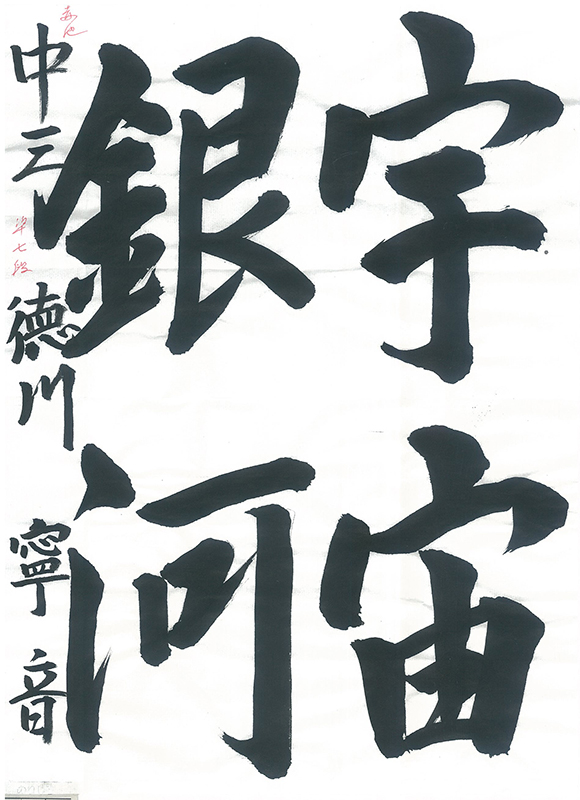 宇宙
銀河
中三 徳川 寧音
準七段